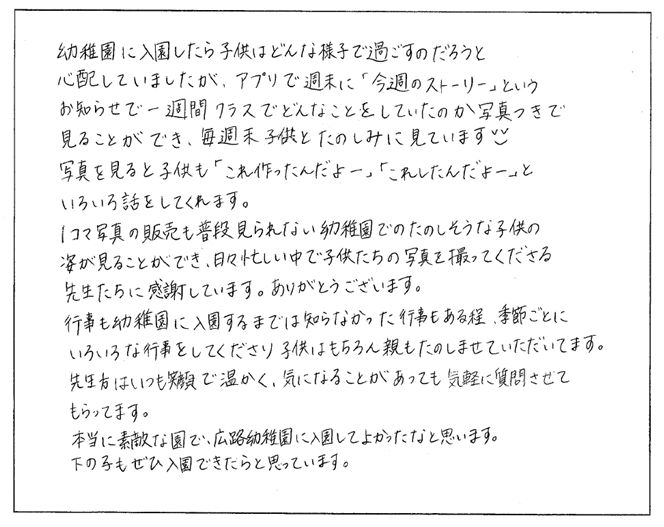 幼稚園に入園したら子供はどんな様子で過ごすのだろうと
心配していましたが、アプリで週末に「今週のストーリー」という
お知らせで一週間クラスでどんなことをしていたのか写真つきで
見ることができ、毎週末子供とたのしみに見ています
写真を見ると子供も「これ作ったんだよー」「これしたんだよー」と
いろいろ話をしてくれます。
1コマ写真の販売も普段見られない幼稚園でのたのしそうな子供の
姿が見ることができ、日々忙しい中で子供たちの写真を撮ってくださる
先生たちに感謝しています。ありがとうございます。
行事も幼稚園に入園するまでは知らなかった行事もある程、季節ごとに
いろいろな行事をしてくださり子供はもちろん親もたのしませていただいてます。
先生方はいつも笑顔で温かく、気になることがあっても気軽に質問させて
もらってます。
本当に素敵な園で、広路幼稚園に入園してよかったなと思います。
下の子もぜひ入園できたらと思っています。